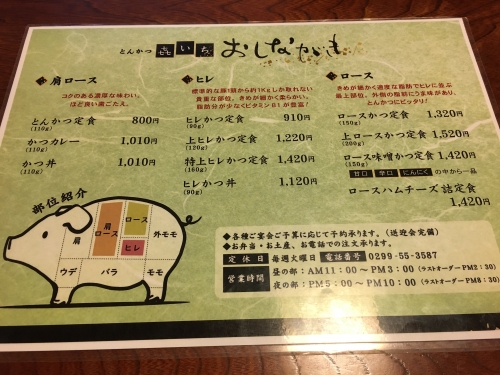 とんかつ 㐂いち おしながき
肩ロース
コクのある濃厚な味わい。
ほど良い歯ごたえ。
とんかつ定食 800円
(110g)
かつカレー 1,010円
(110g)
かつ丼 1,010円
(110g)
ヒレ
標準的な豚1頭から約1Kgしか取れない
貴重な部位、きめが細かく柔らかい、
脂肪分が少なくビタミンB1が豊富!
ヒレかつ定食 910円
(90g)
上ヒレかつ定食 1,220円
(120g)
特上ヒレかつ定食 1,420円
(160g)
ヒレかつ丼 1,120円
(90g)
ロース
きめが細かく適度な脂肪でヒレに並ぶ
最上部位、外側の脂肪にうま味があり、
とんかつにピッタリ!
ロースかつ定食 1,320円
(150g)
上ロースかつ定食 1,520円
(200g)
ロース味噌かつ定食 1,420円
(150g)
甘口 辛口 にんにく の中から一品
ロースハムチーズ詰定食
1,420円
部位紹介
肩
肩ロース
ロース
ヒレ
外モモ
ウデ
バラ
モモ
◆各種ご宴会ご予算に応じて予約承ります。(送迎会完備)
◆お弁当・お土産、お電話での注文承ります。
定休日 毎週火曜日 電話番号 0299-55-3587
営業時間 昼の部:AM11:00~PM3:00(ラストオーダーPM2:30)
夜の部:PM5:00~PM10:00(ラストオーダーPM8:30)